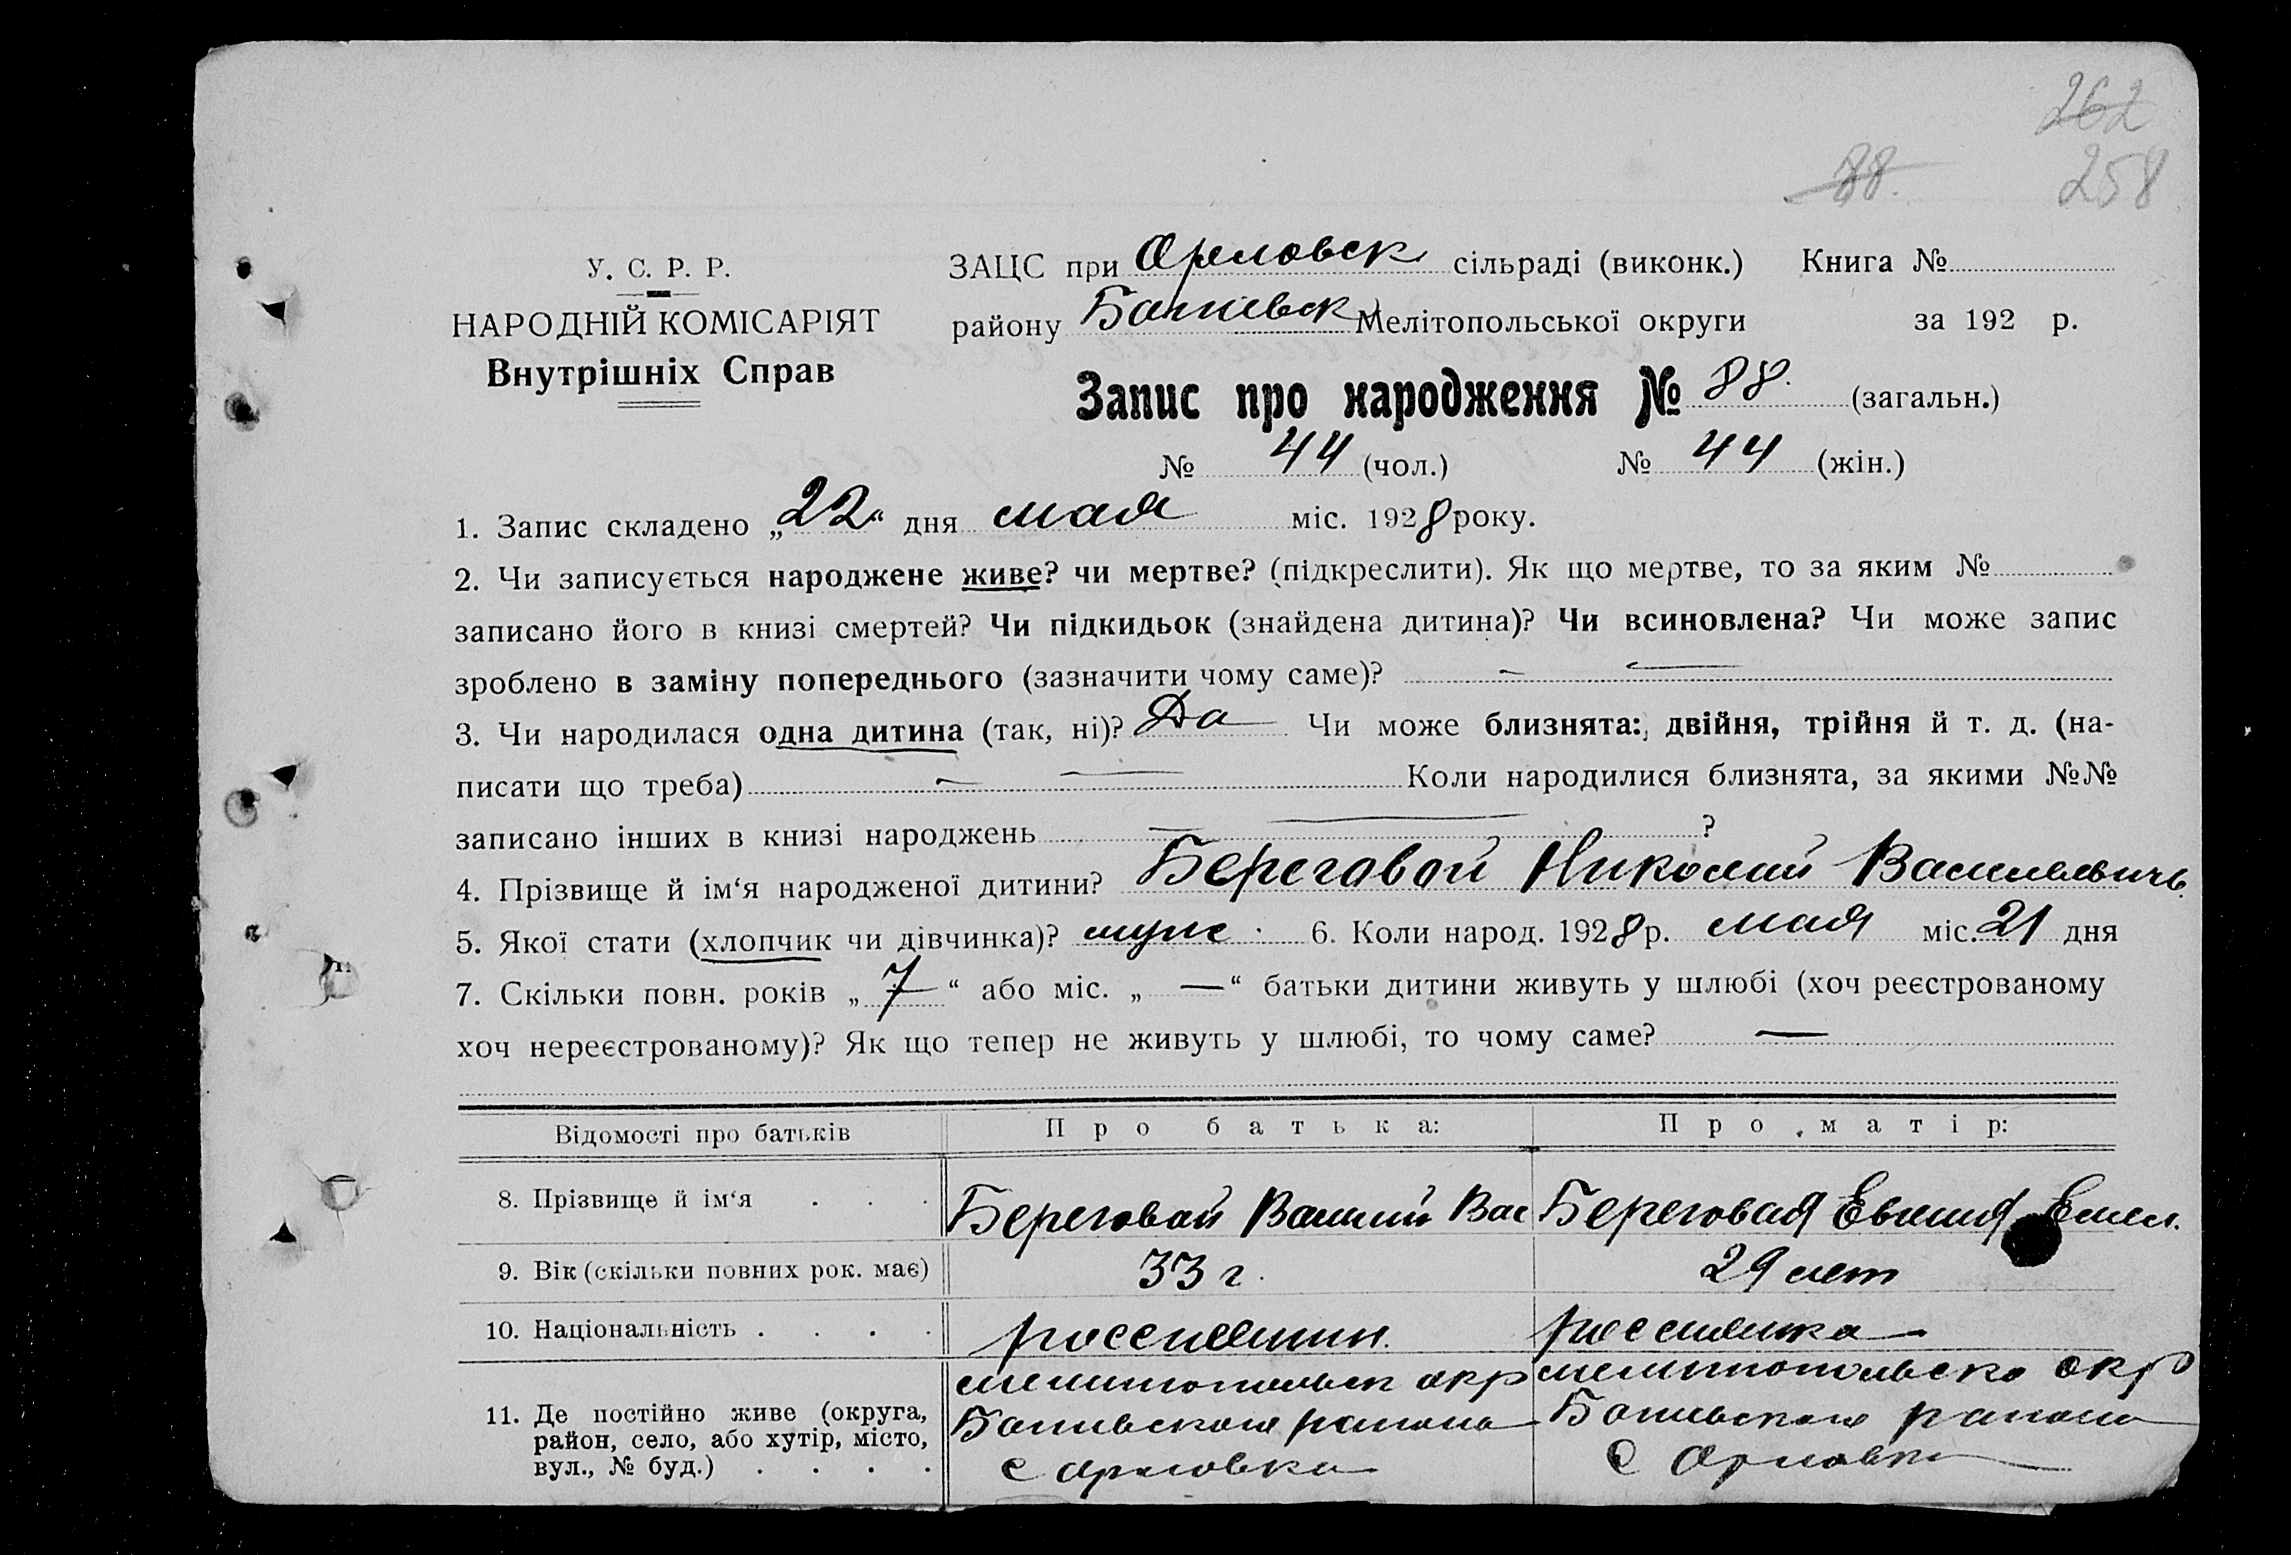 262
88. 258
У. С. Р. Р.
НАРОДНІЙ КОМІСАРІЯТ
Внутрішніх Справ
ЗАЦС при Орловск сільраді (виконк.) Книга №
району Мелітопольської округи за 192 р.
Запис про народження № 88. (загальн.)
№ 44 (чол.) № 44 (жін.)
1. Запис складено „22“ дня мая міс. 1928 року.
2. Чи записується народжене живе? чи мертве? (підкреслити). Як що мертве, то за яким №
записано його в книзі смертей? Чи підкидьок (знайдена дитина)? Чи всиновлена? Чи може запис
зроблено в заміну попереднього (зазначити чому саме)? —
3. Чи народилася одна дитина (так, ні)? Да Чи може близнята: двійня, трійня й т. д. (на-
писати що треба) — Коли народилися близнята, за якими №№
записано інших в книзі народжень — ?
4. Прізвище й ім‘я народженої дитини? Береговой Николай Васильевичь
5. Якої стати (хлопчик чи дівчинка)? муж. 6. Коли народ. 1928 р. мая міс. 21 дня
7. Скільки повн. років „7“ або міс. „—“ батьки дитини живуть у шлюбі (хоч реєстрованому
хоч нереєстрованому)? Як що тепер не живуть у шлюбі, то чому саме? —
Відомості про батьків Про батька: Про матір:
8. Прізвище й ім‘я . . . Береговой Василий Вас Береговая Евгения Емел.
9. Вік (скільки повних рок. має) 33 г. 29 лет
10. Національність . . . . россиянин. россиянка
11. Де постійно живе (округа, район, село, або хутір, місто, вул., № буд.) . . . .
мелитопольск окр мелитопольско окр
района района
с Орловка с Орловка